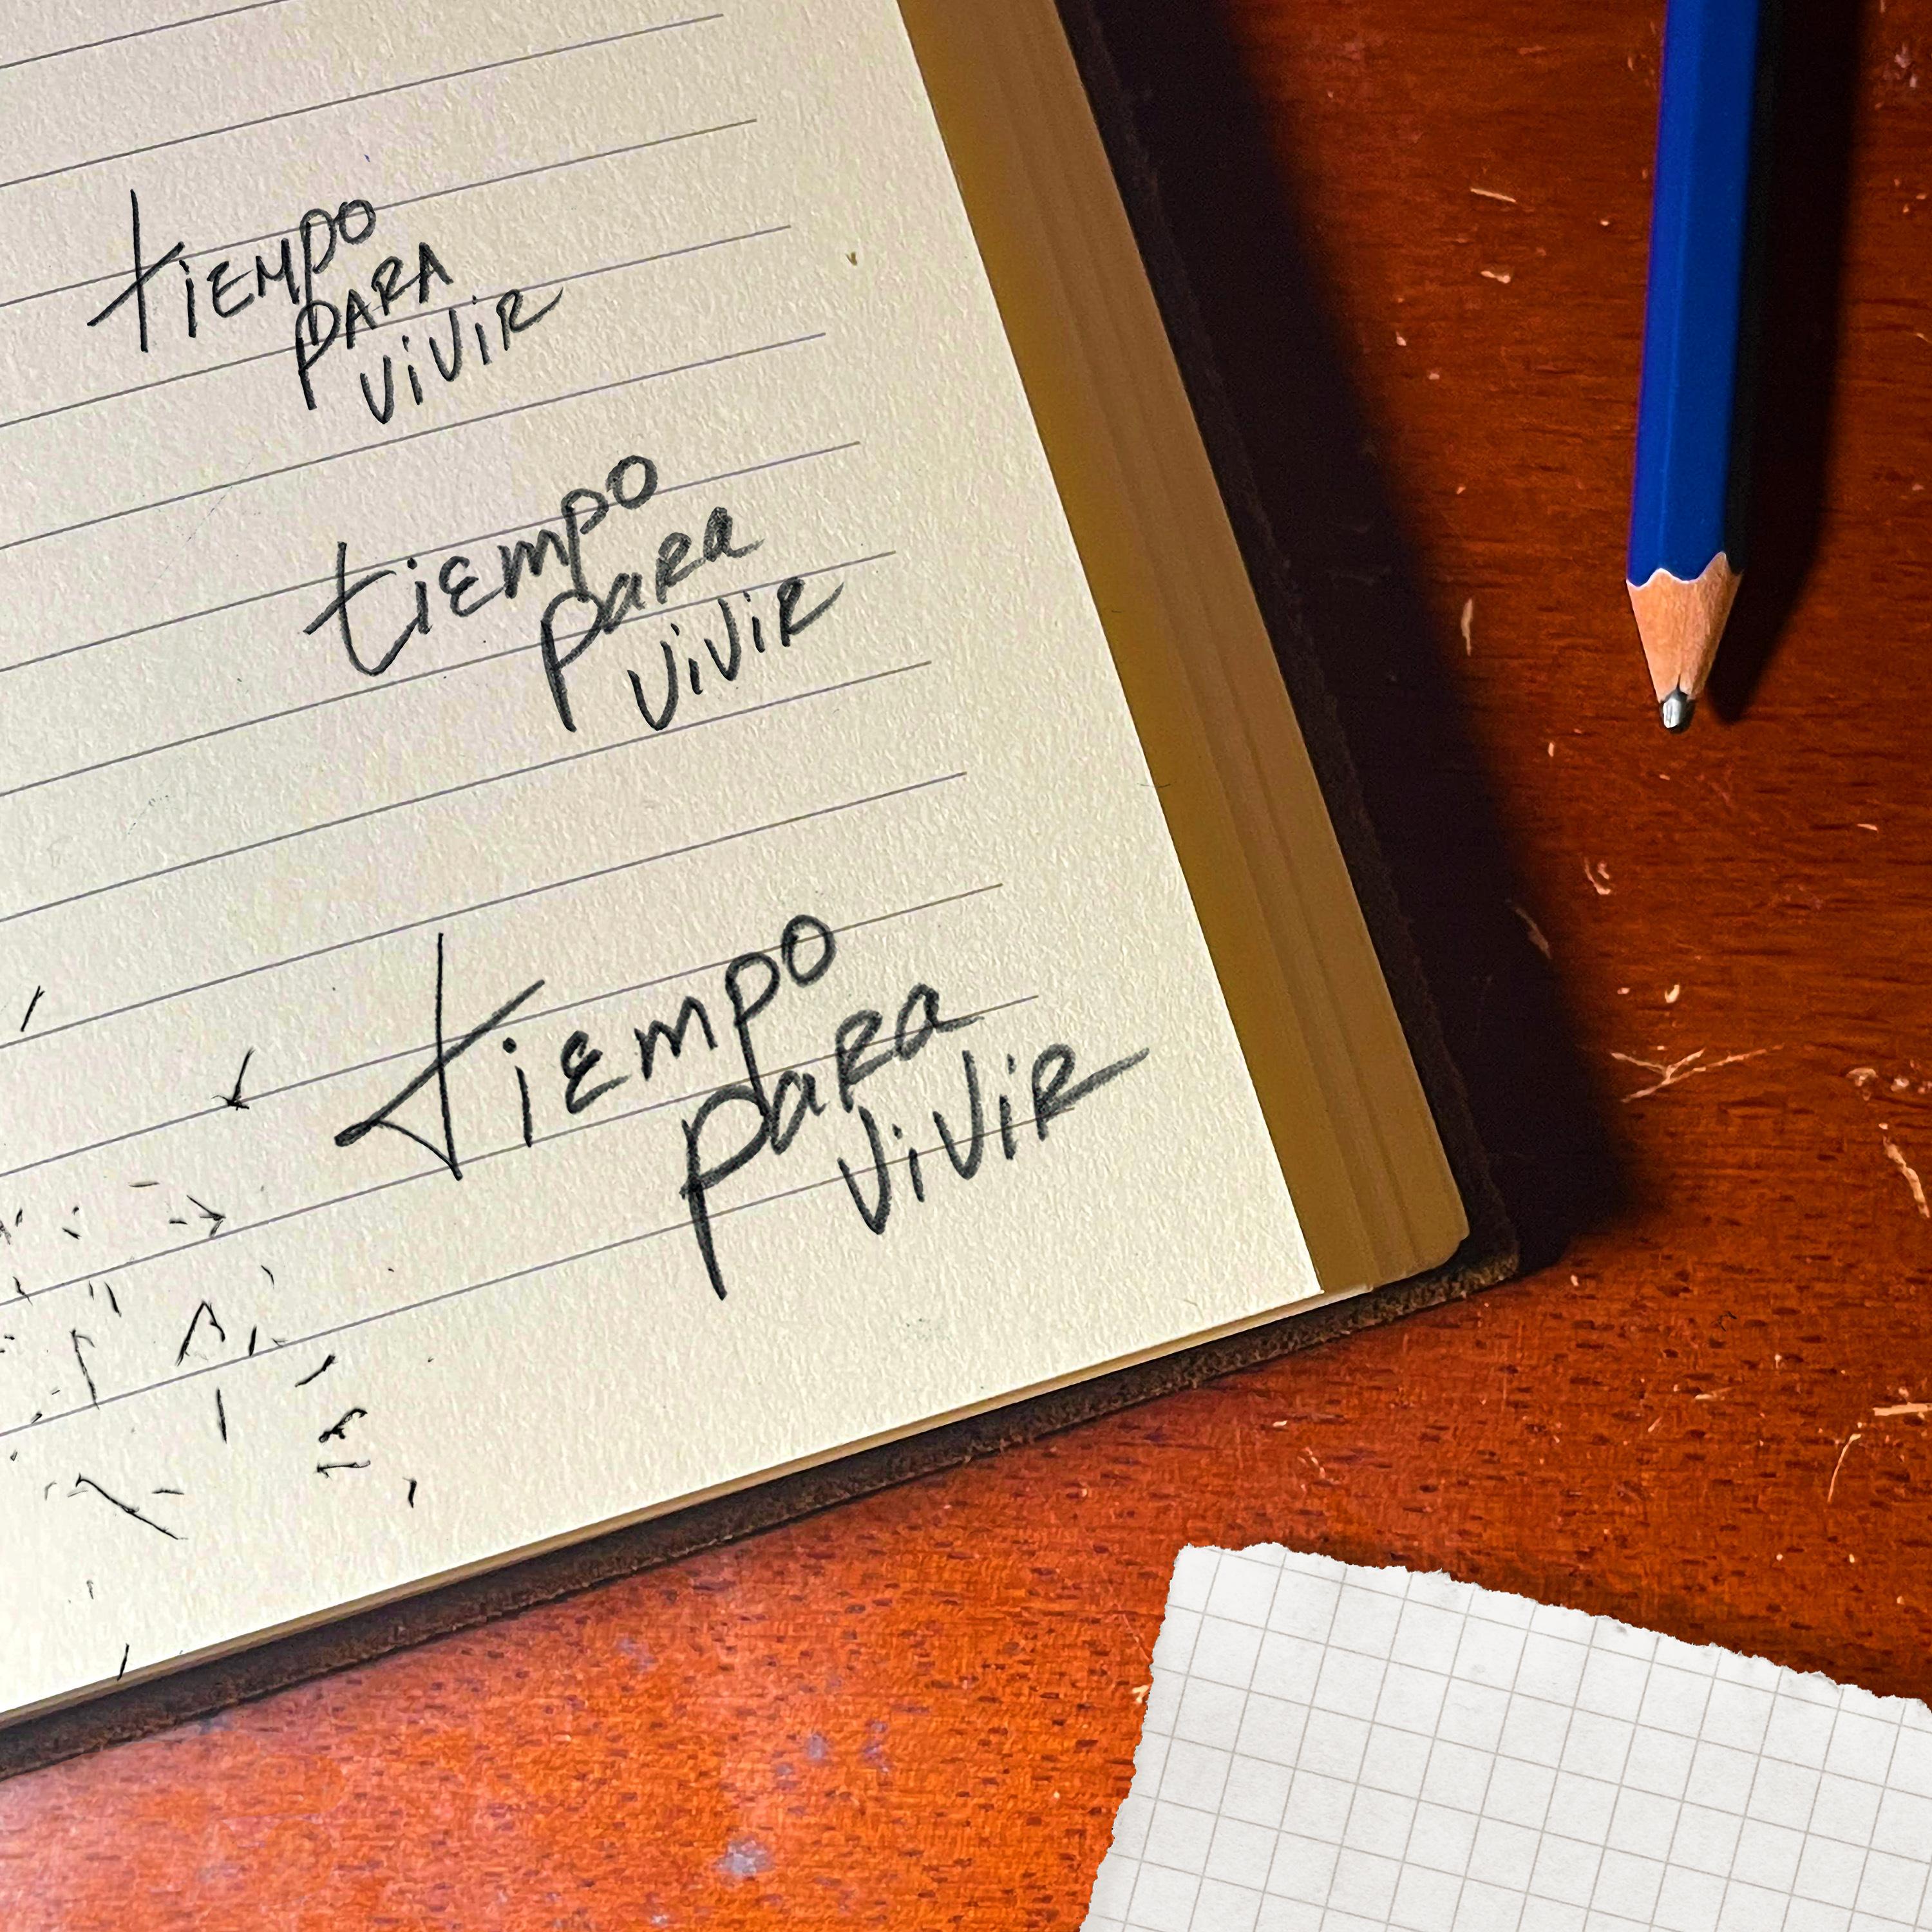 tiEMPO
PARA
ViViR
tiempo
paRa
ViViR
tiempo
paRa
ViViR